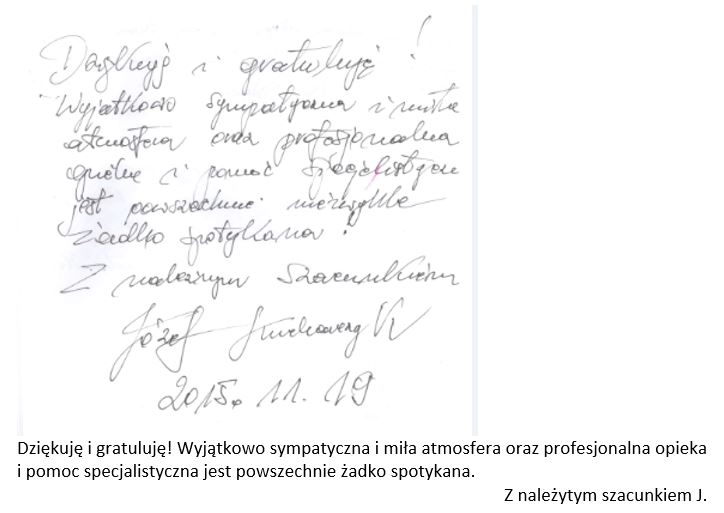 Dziękuję i gratuluję !
Wyjątkowo sympatyczna i miła
atmosfera oraz profesjonalna
opieka i pomoc specjalistyczn
jest powszechnie niezwykle
żadko spotykana !
Z należytym szacunkiem
Józef
2015. 11. 19
Dziękuję i gratuluję! Wyjątkowo sympatyczna i miła atmosfera oraz profesjonalna opieka
i pomoc specjalistyczna jest powszechnie żadko spotykana.
Z należytym szacunkiem J.